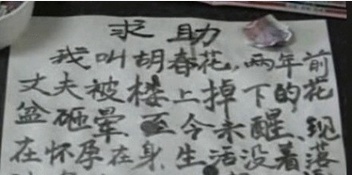 求助
我叫胡春花,两年前
丈夫被楼上掉下的花
盆砸晕,至今未醒、现
在怀孕在身,生活没着落